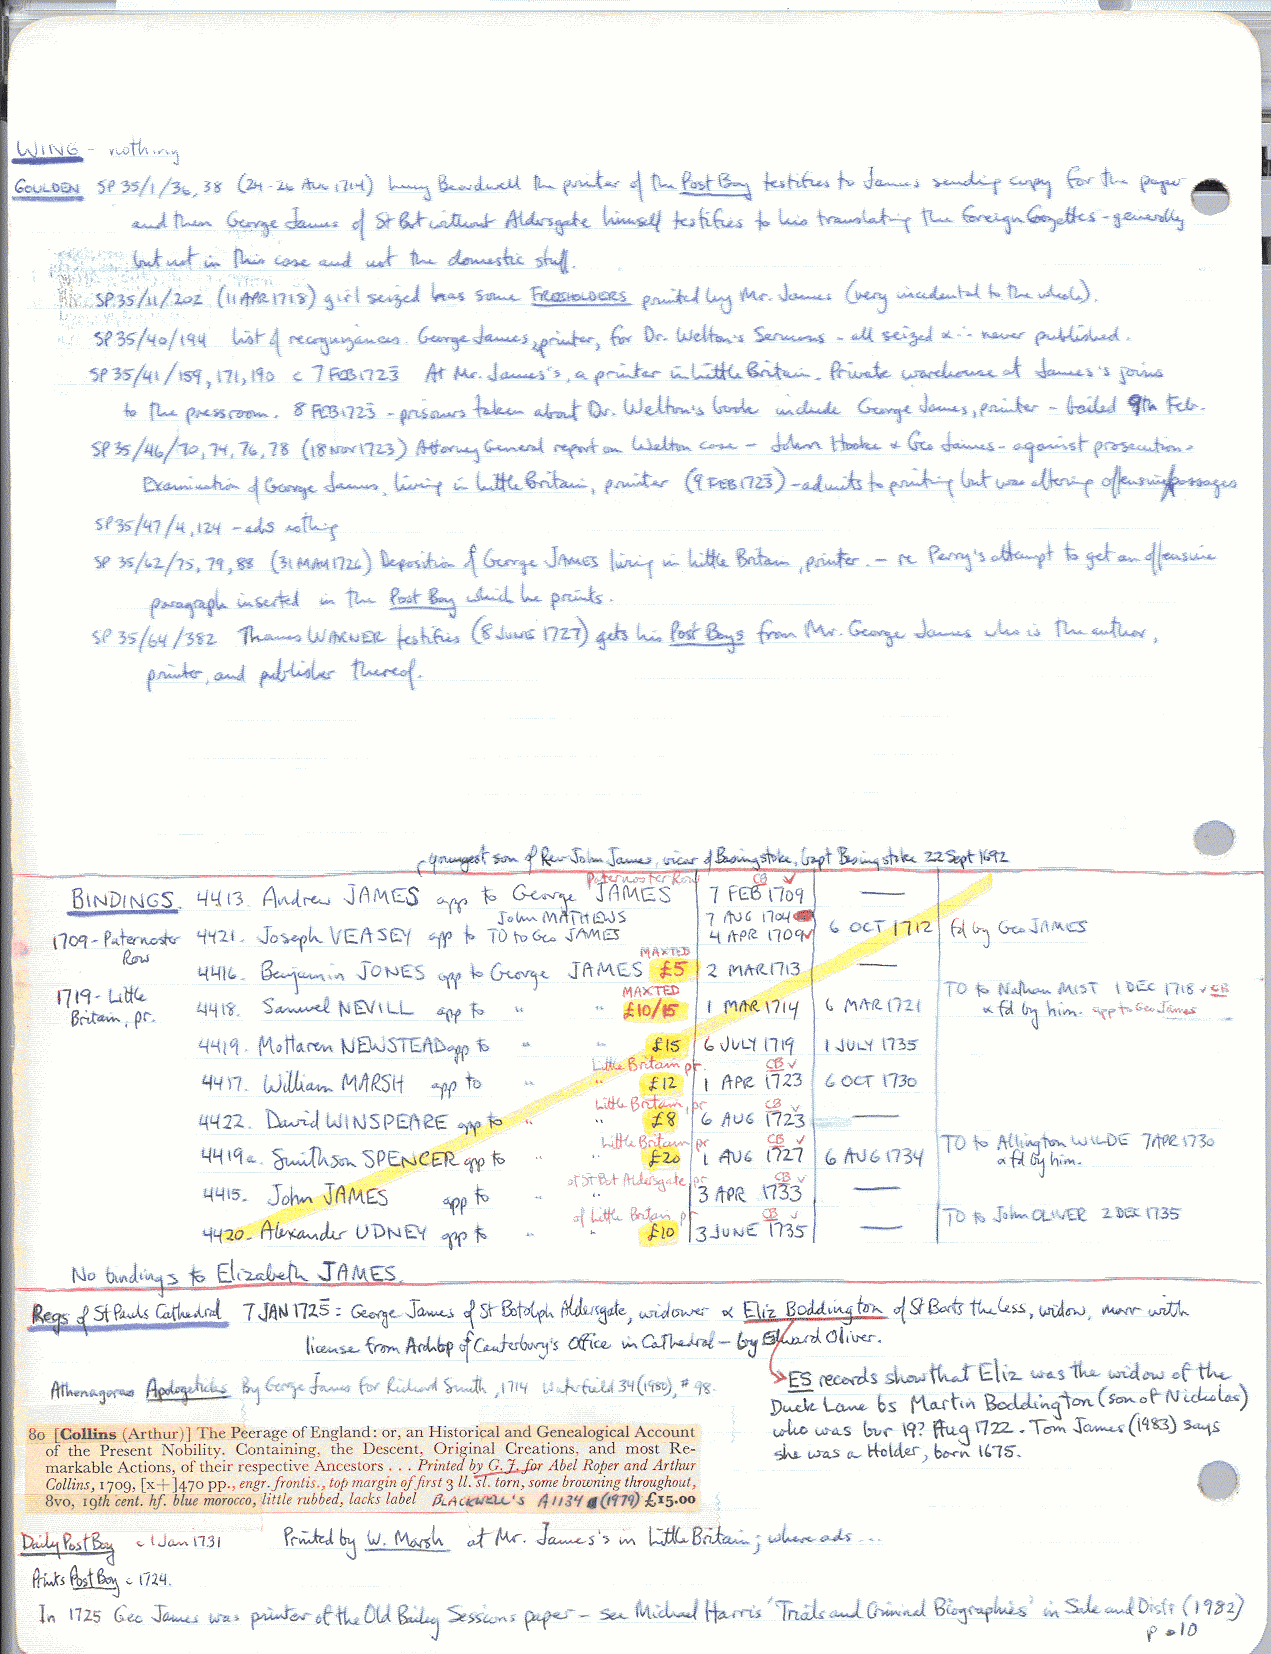 WING - nothing
GOULDEN SP 35/1/36, 38 (24-26 AUG 1714) Henry Beardwell the printer of the Post Boy testifies to James sending copy for the paper
and then George James of St Bot without Aldersgate himself testifies to his translating the foreign Gazettes - generally
but not in this case and not the domestic stuff.
SP 35/11/202 (11 APR 1718) girl seized has some FREEHOLDERS printed by Mr. James (very incidental to the whole).
SP 35/40/194 List of recognizances. George James, printer, for Dr. Welton's Sermons - all seized & never published.
SP 35/41/159, 171, 190 c 7 FEB 1723 At Mr. James's, a printer in Little Britain. Private warehouse at James's joins
to the pressroom. 8 FEB 1723 - prisoners taken about Dr. Welton's book include George James, printer - bailed 9th Feb.
SP 35/46/70, 74, 76, 78 (18 Nov 1723) Attorney General report on Welton case - John Hooke & Geo James - against prosecution -
Examination of George James, living in Little Britain, printer (9 FEB 1723) - admits to printing but was altering offensive passages
SP 35/47/4, 124 - ads nothing
SP 35/62/75, 79, 88 (31 MAY 1726) Deposition of George JAMES living in Little Britain, printer. - re Perry's attempt to get an offensive
paragraph inserted in the Post Boy which he prints.
SP 35/64/382 Thomas WARNER testifies (8 JUNE 1727) gets his Post Boys from Mr. George James who is the author,
printer, and publisher thereof.
youngest son of Rev John James, vicar of Basingstoke, bapt Basingstoke 22 Sept 1692
Paternoster Row CB ✓
BINDINGS. 4413. Andrew JAMES app to George JAMES 7 FEB 1709 —
John MATHEWS 7 AUG 1704
1709 - Paternoster Row 4421. Joseph VEASEY app to TO to Geo JAMES 4 APR 1709 ✓ 6 OCT 1712 fd by Geo JAMES
MAXTED
4416. Benjamin JONES app to George JAMES £5 2 MAR 1713 —
MAXTED TO to Nathan MIST 1 DEC 1718 ✓ CB
1719 - Little Britain, pr. 4418. Samuel NEVILL app to " " £10/15 1 MAR 1714 6 MAR 1721 & fd by him. app to Geo James
4419. Mottaren NEWSTEAD app to " " £15 6 JULY 1719 1 JULY 1735
Little Britain pr. CB ✓
4417. William MARSH app to " " £12 1 APR 1723 6 OCT 1730
Little Britain, pr CB ✓
4422. David WINSPEARE app to " " £8 6 AUG 1723 —
Little Britain pr CB ✓ TO to Allington WILDE 7 APR 1730
4419a. Smithson SPENCER app to " " £20 1 AUG 1727 6 AUG 1734 & fd by him.
of St Bot Aldersgate, pr CB ✓
4415. John JAMES app to " " 3 APR 1733 —
of Little Britain pr CB ✓ TO to John OLIVER 2 DEC 1735
4420. Alexander UDNEY app to " " £10 3 JUNE 1735 —
No bindings to Elizabeth JAMES.
Regs of St Pauls Cathedral 7 JAN 1725: George James of St Botolph Aldersgate, widower & Eliz Boddington of St Barts the Less, widow, marr with
license from Archbp of Canterbury's Office in Cathedral - by Edward Oliver.
Athenagoras Apologeticks By George James for Richard Smith, 1714 Waterfield 34 (1980), # 98.
ES records show that Eliz was the widow of the
Duck Lane bs Martin Boddington (son of Nicholas)
who was bur 19? Aug 1722. Tom James (1983) says
she was a Holder, born 1675.
80 [Collins (Arthur)] The Peerage of England: or, an Historical and Genealogical Account
of the Present Nobility. Containing, the Descent, Original Creations, and most Re-
markable Actions, of their respective Ancestors . . . Printed by G. J. for Abel Roper and Arthur
Collins, 1709, [x+]470 pp., engr. frontis., top margin of first 3 ll. sl. torn, some browning throughout,
8vo, 19th cent. hf. blue morocco, little rubbed, lacks label BLACKWELL'S A1134 (1979) £15.00
Daily Post Boy c 1 Jan 1731 Printed by W. Marsh at Mr. James's in Little Britain; where ads ...
Prints Post Boy c 1724.
In 1725 Geo James was printer of the Old Bailey Sessions paper - see Michael Harris 'Trials and Criminal Biographies' in Sale and Distr (1982)
p 10